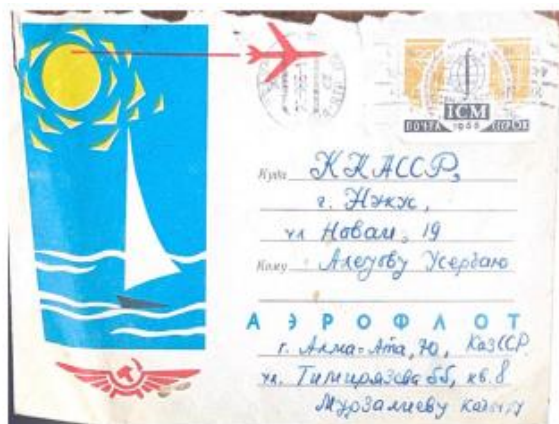 ICM
ПОЧТА 1966 СССР
Куда ККАССР,
г. Нукус,
ул Новая, 19
Кому Алеуову Усербаю
АЭРОФЛОТ
г. Алма-Ата, 70, КазССР.
ул. Тимирязева 55, кв. 8
Мурзалиеву